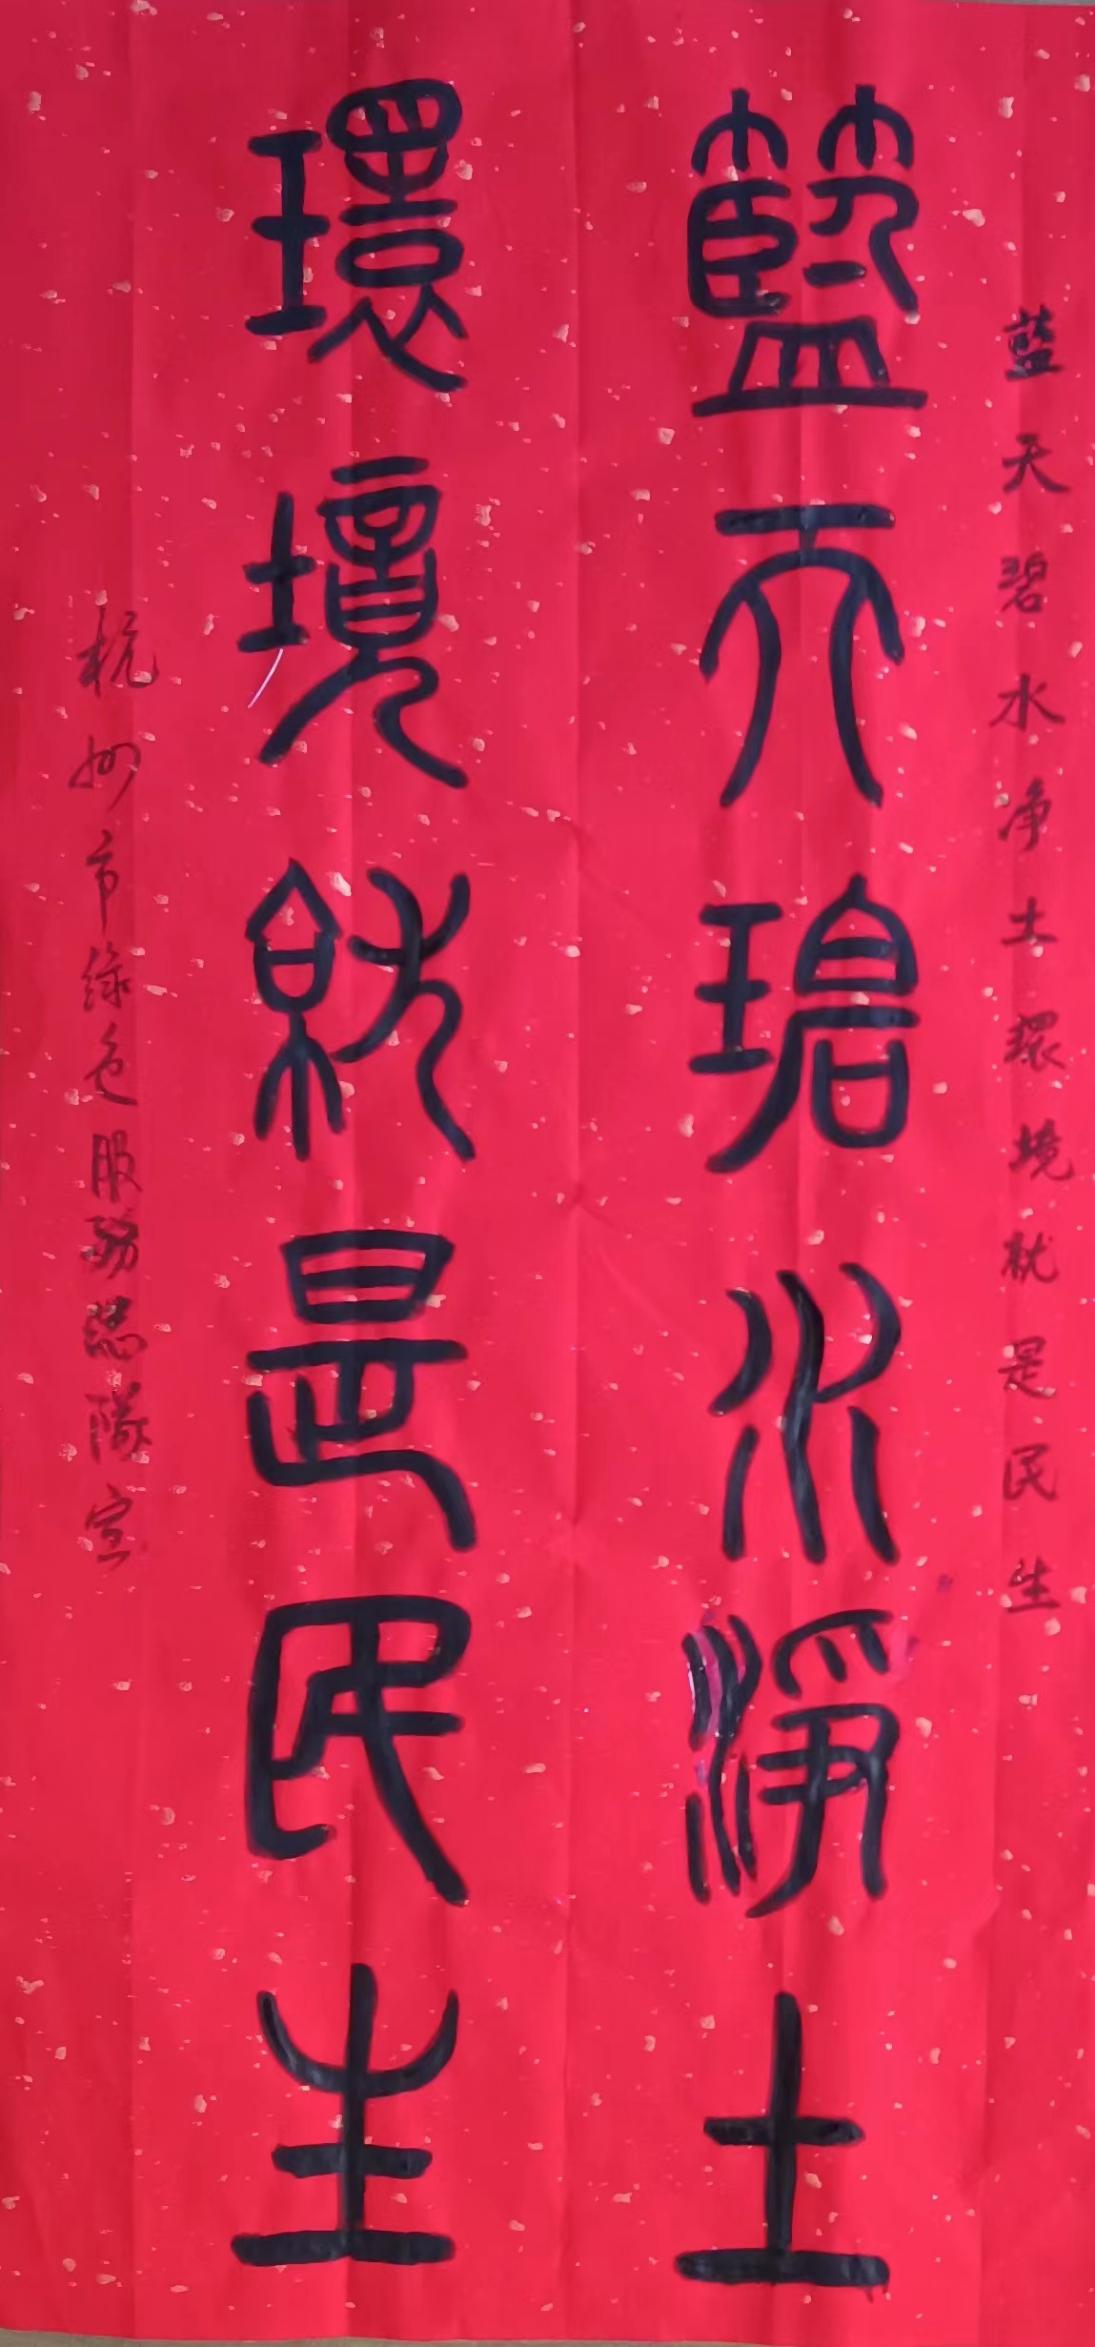 藍天碧水净土環境就是民生
籃天碧水淨土
環境就是民生
杭州市綠色服務總隊宣